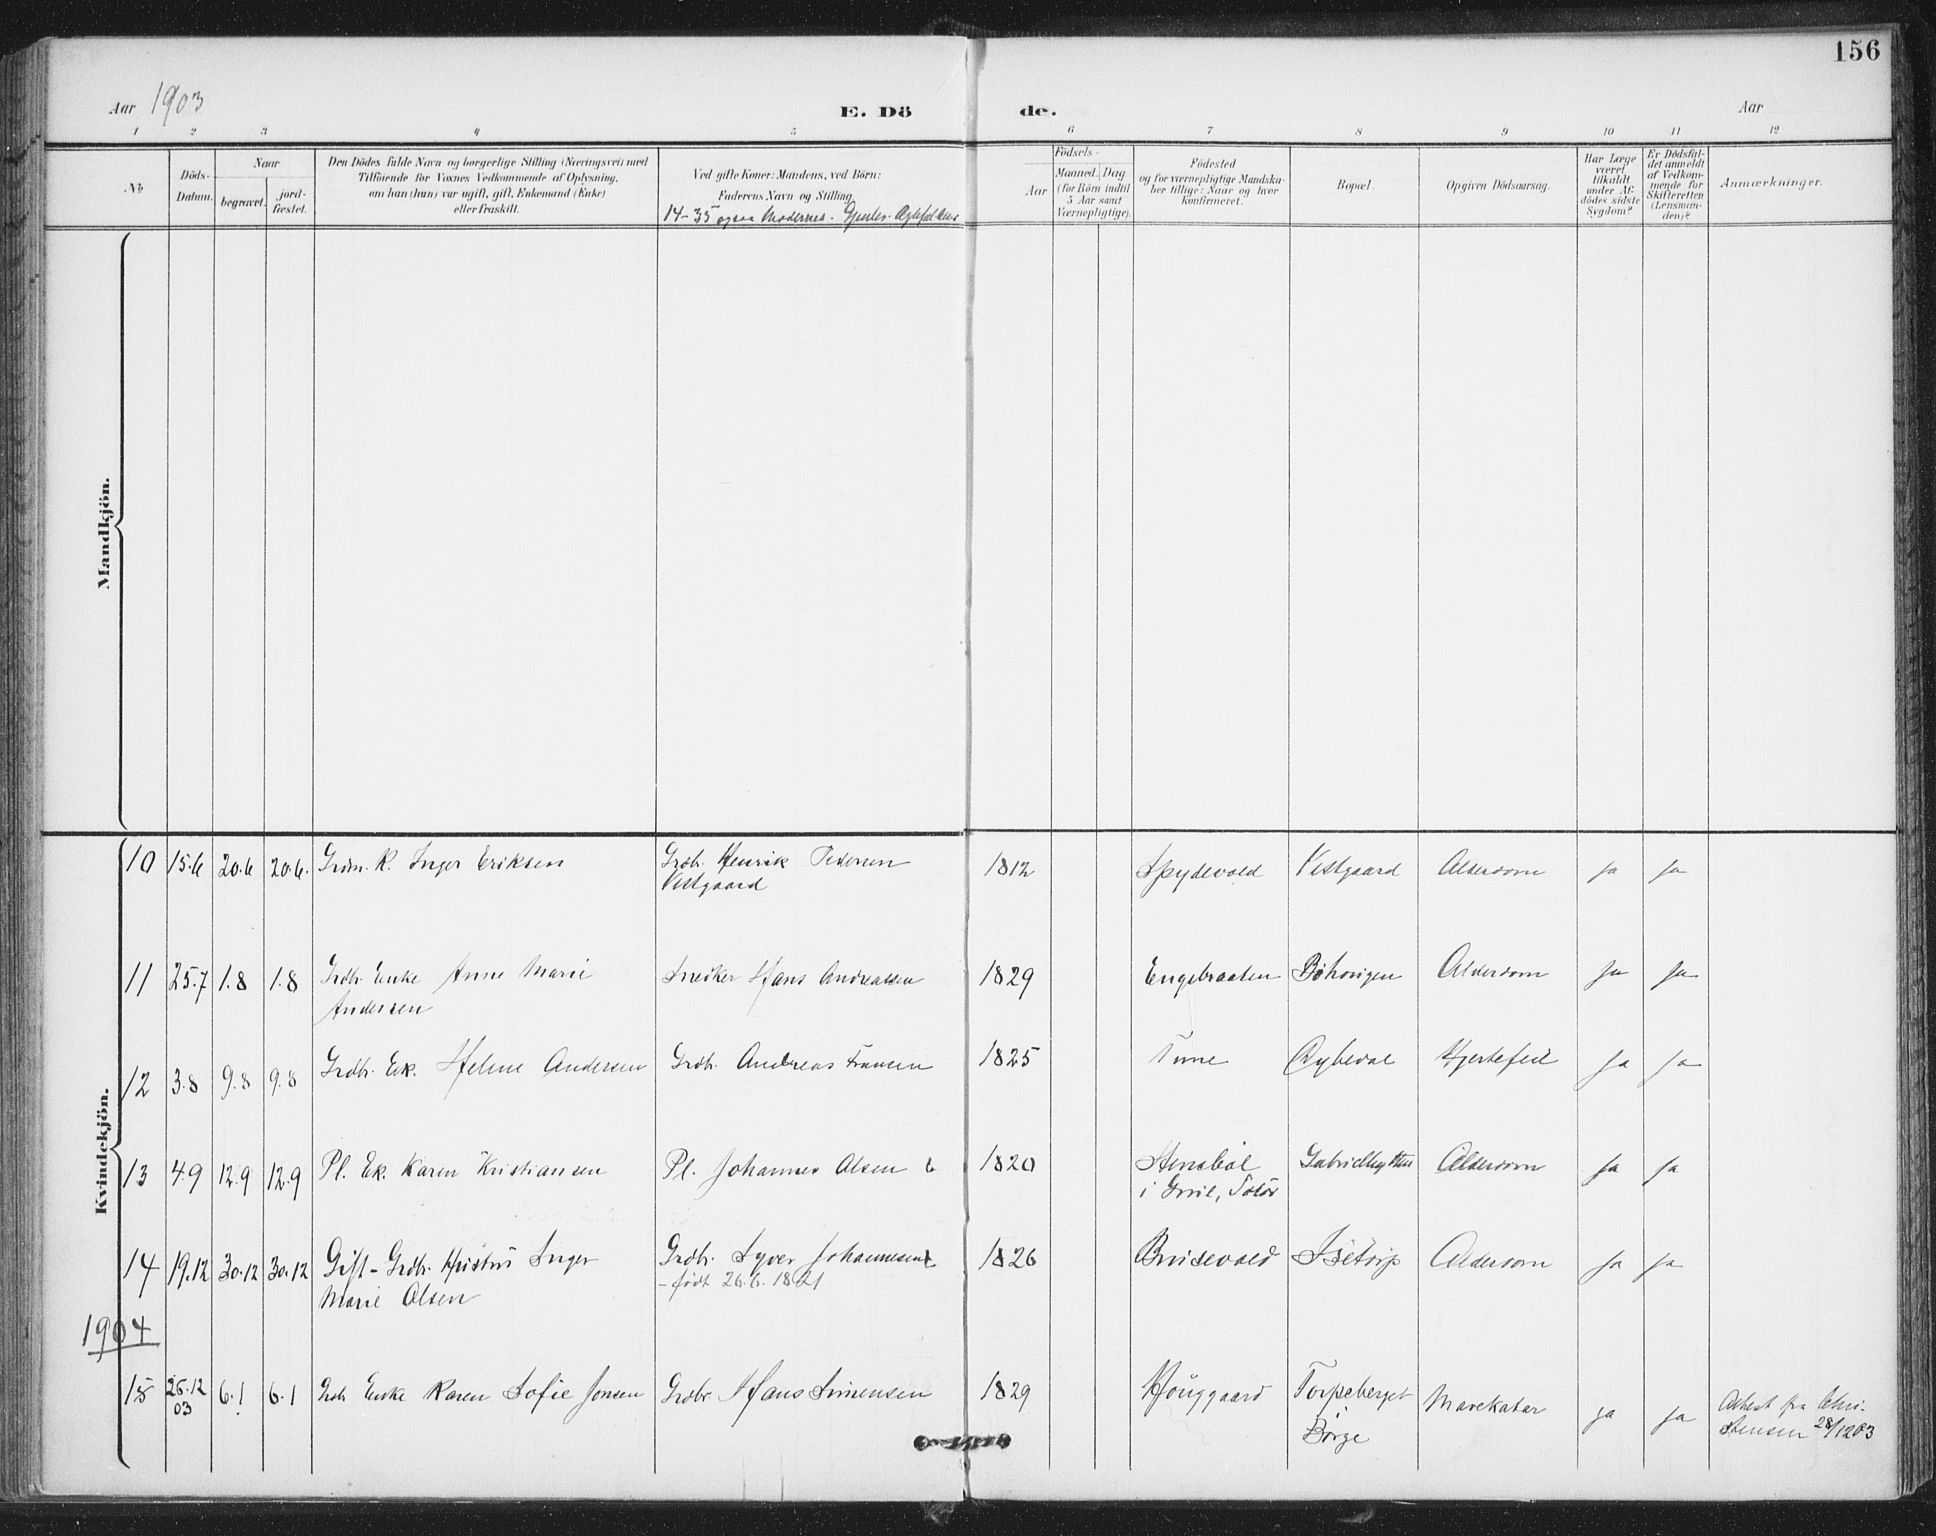 156
Aar 1903
E. Dö
de.
Aar
1 2 3 4 5 6 7 8 9 10 11 12
No
Döds-
Datum.
Naar
begravet.
jord-
fæstet.
Den Dödes fulde Navn og borgerlige Stilling (Næringsvei) med
Tilföiende for Voxnes Vedkommende af Oplysning,
om han (hun) var ugift, gift, Enkemand (Enke)
eller fraskilt.
Ved gifte Koner: Mandens, ved Börn:
Faderens Navn og Stilling.
14-35 ogsaa Moderens.
Födsels-
Aar
Maaned. Dag
(for Börn indtil
5 Aar samt
Værnepligtige).
Födested
og for værnepligtige Mandska-
ber tillige: Naar og hvor
konfirmeret.
Bopæl.
Opgiven Dödsaarsag.
Har Læge
været
tilkaldt
under Af-
dödes sidste
Sygdom?
Er Dödsfal-
det anmeldt
af Vedkom-
mende for
Skifteretten
(Lensman-
den)?
Anmærkninger.
Mandkjön.
Kvindekjön.
10 15.6 20.6 20.6. Grdm. K. Inger Eriksen Grdb. Henrik Pedersen 1812 Spydevold Vestgaard Alderdom ja ja
Vestgaard
11 25.7 1.8 1.8 Grdb. Enke Anne Marie Snedker Hans Andreassen 1829 Engebraaten Alderdom ja ja
Andersen
12 3.8 9.8 9.8 Grdb. Ek. Helene Andersen Grdb. Andreas Fransen 1825 Tune Hjertefeil ja ja
13 4.9 12.9 12.9 Pl. Ek. Karen Kristiansen Pl. Johannes Olsen 1820 Gabrielhytten Alderdom ja ja
i Solör
14 19.12 30.12 30.12 Gift - Grdbr. Hustru Inger Grdbr. Syver Johannesen 1826 Isetorp Alderdom ja ja
Marie Olsen - født 26.6.1821
1904
15 26.12 03 6.1 6.1 Grdb. Enke Karen Sofie Jonsen Grdbr. Hans Simensen 1829 Houggaard Torpeberget Mavekatar ja ja Attest fra Chri-
Borge stensen 28/12 03